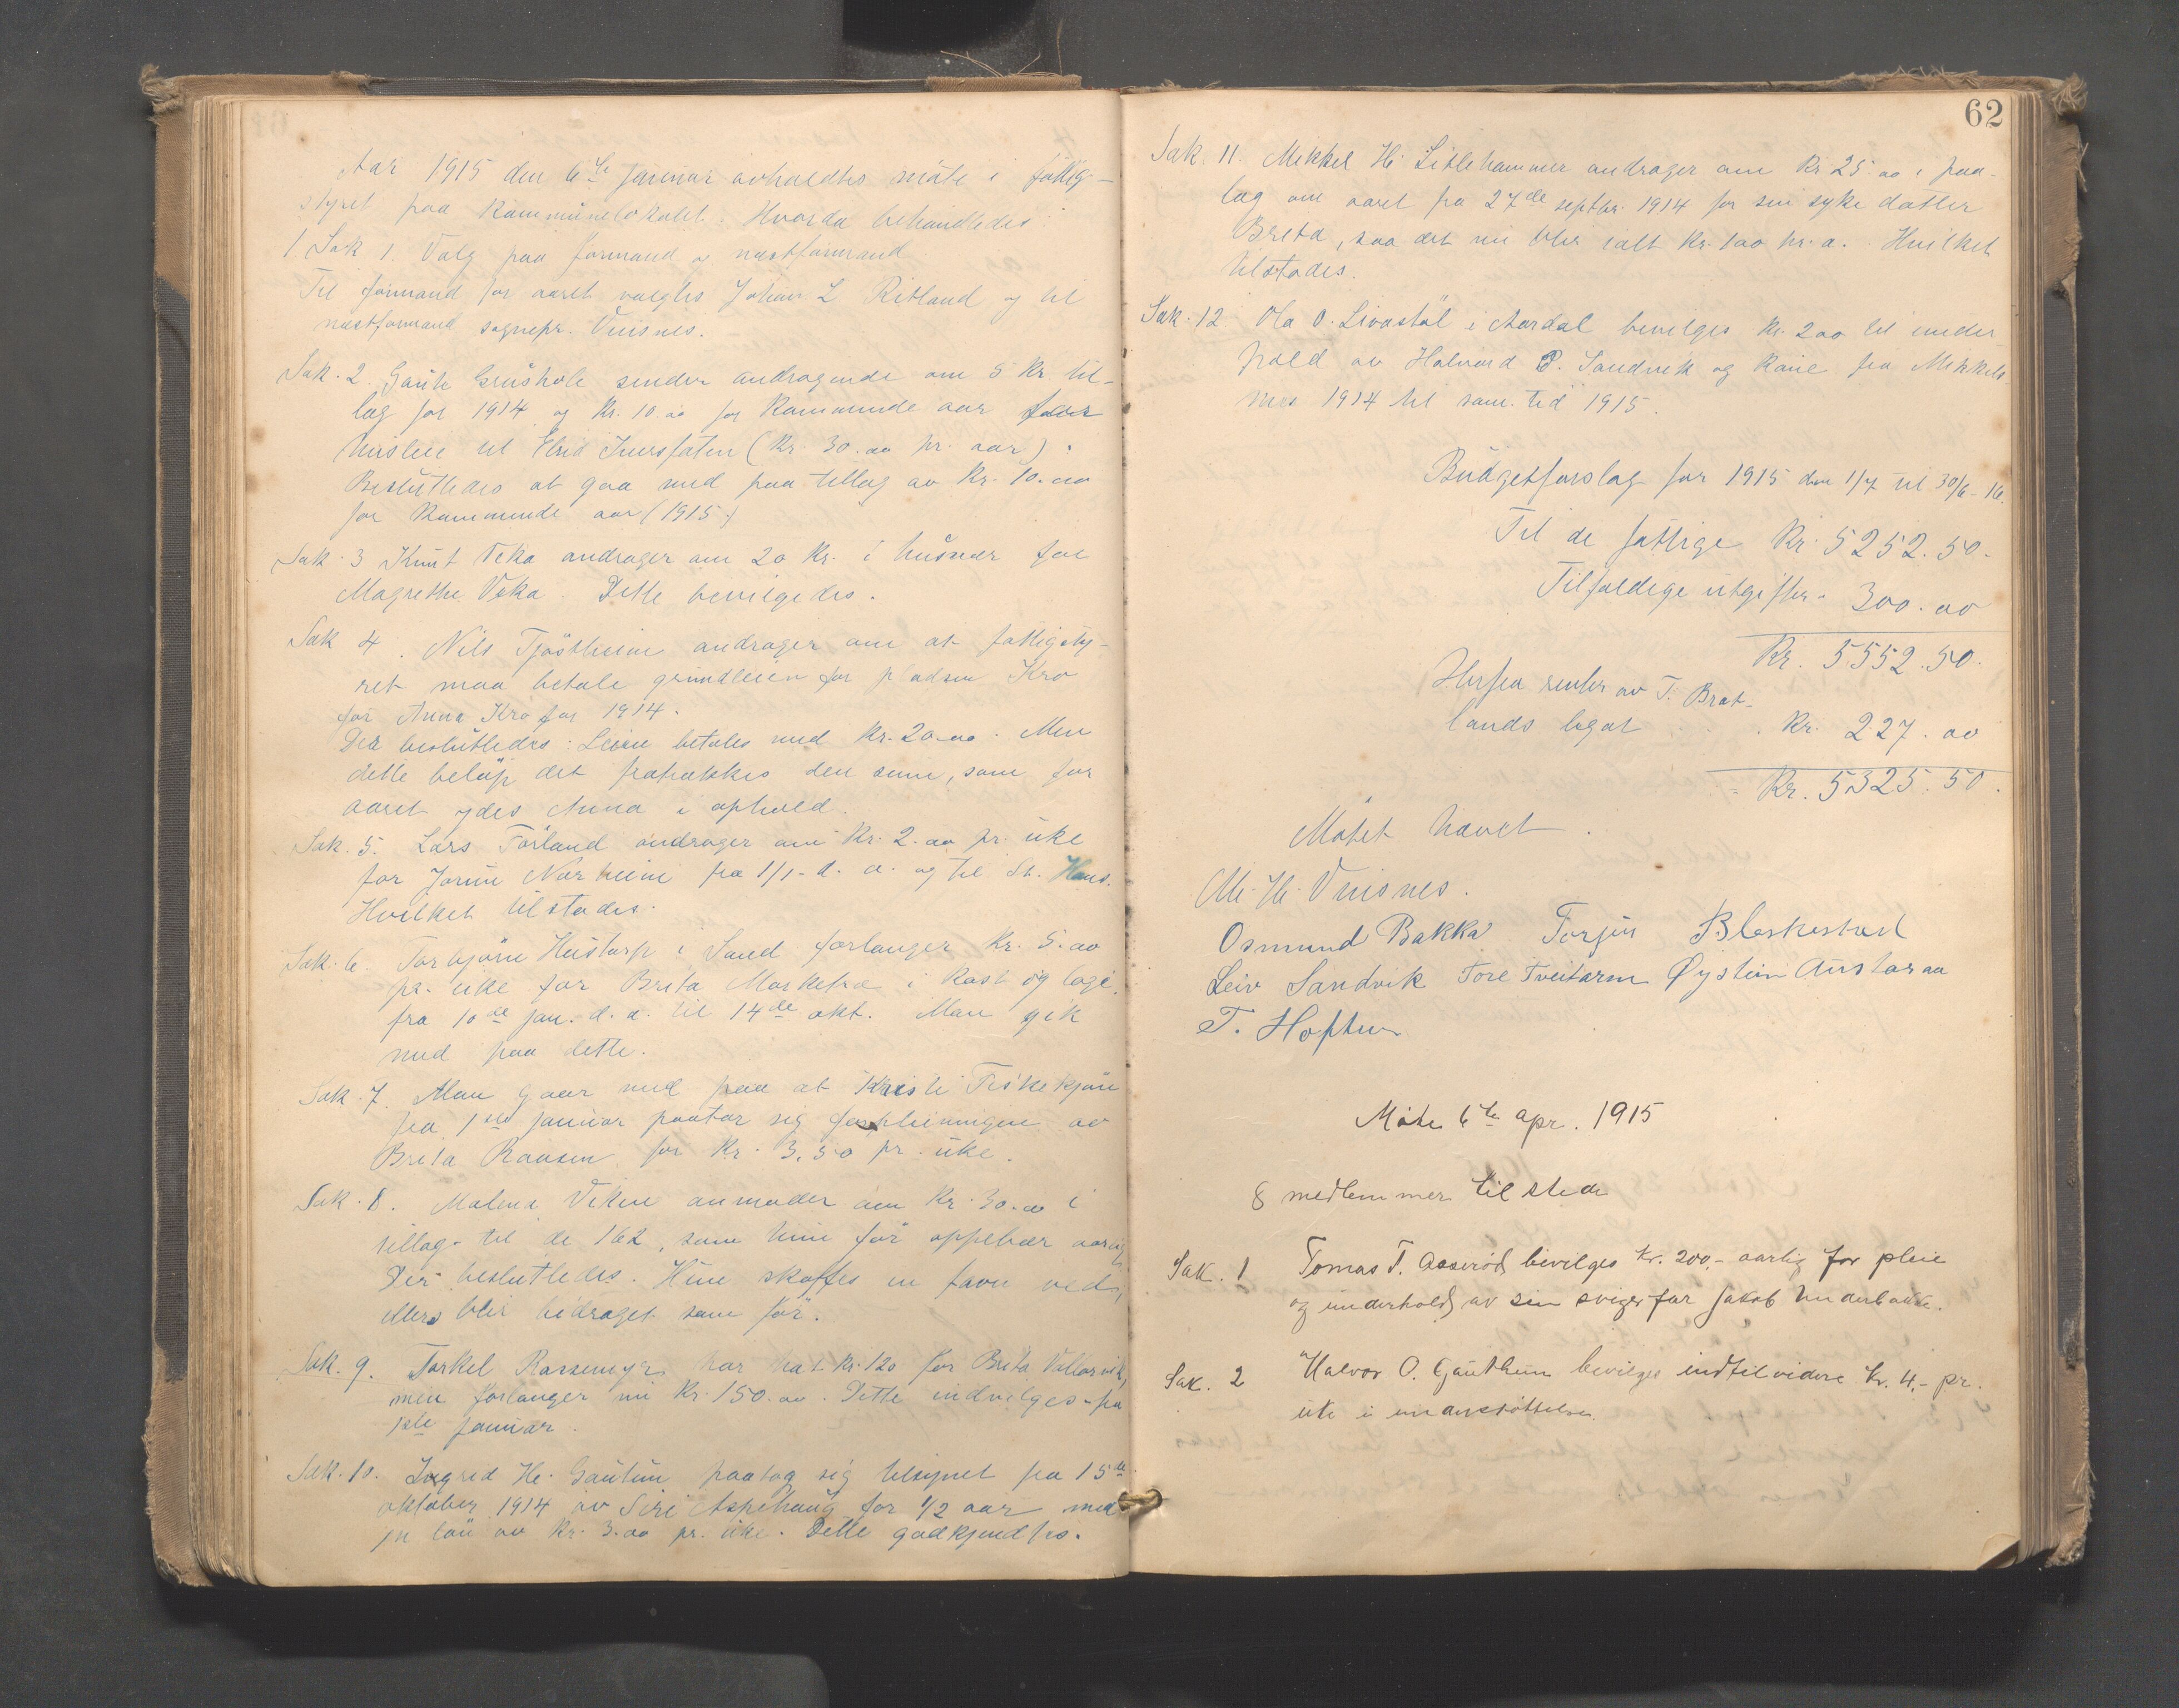 Aar 1915 den 6te januar avholdtes möte i fattig-
styret paa kommunelokalet. Hvorda behandledes:
1 Sak 1. Valg paa formand og næstformand
Til formand for aaret valgtes Johan L Ritland og til
næstformand sognepr. Vinsnes.
Sak. 2. Gaute Grushole sender andragende om 5 kr til-
læg for 1914 og Kr. 10.00 for kommende aar
husleie til (Kr. 30.00 pr. aar).
Beslutledes at gaa med paa tillæg av Kr. 10.00
for kommende aar (1915.)
Sak. 3 Knut Veka andrager om 20 Kr. i husvær for
Magrethe Veka. Dette bevilgedes.
Sak 4. Nils Tjöstheim andrager om at fattigsty-
ret maa betale grundleien for pladsen Kro
for Anna Kro for 1914.
Der beslutledes: Leien betales med Kr. 20.00. Men
dette belöp det fratrækkes den sum, som for
aaret ydes Anna i ophold.
Sak. 5. Lars Förland andrager om Kr. 2.00 pr. uke
for Jorun Norheim fra 1/1- d. a. og til St. Hans.
Hvilket tilstodes.
Sak. 6. Torbjörn Hustorp i Sand forlanger Kr. 5.00
pr. uke for Brita i kost og logi,
fra 10de jan. d. a. til 14de okt. Man gik
med paa dette.
Sak. 7. Man gaar med paa at Kristi Fiskekjön
fra 1ste januar paatar sig forpleiningen av
Brita Roaven for Kr. 3,50 pr. uke.
Sak. 8. Malena Veken anmoder om Kr. 30.00 i
tillæg til de 162, som hun för oppebær aarlig
Der beslutledes. Hun skaffes en favn ved,
ellers blir bidraget som för.
Sak. 9. Torkel Rossemyr har hat Kr. 120 for Brita
men forlanger nu Kr. 150.00. Dette indvilges fra
1ste januar.
Sak. 10. Ingrid H. Gautun paatog sig tilsynet fra 15de
oktober 1914 av Siri Aspehaug for 1/2 aar med
en lön av Kr. 3.00 pr. uke. Dette godkjendtes.
62
Sak. 11. Mikkel H. Litlehammer andrager om Kr 25.00 i paa-
læg om aaret fra 27de septbr. 1914 for sin syke datter
Breta, saa det nu blir ialt Kr. 100 pr. a. Hvilket
tilstodes.
Sak. 12 Ola O. Livastöl i Aardal bevilges Kr. 200 til under
hold av Halvard P. Sandvik og kone fra Mikkels
mes 1914 til sam. tid 1915.
Budgetforslag for 1915 den 1/7 til 30/6-16.
Til de fattige Kr. 5252.50.
Tilfældige utgifter - 300.00
Kr. 5552.50.
Herfra renter av T. Brat-
lands legat . . . Kr. 227.00
= Kr. 5325.50.
Mötet hævet.
M. H. Vinsnes.
Osmund Bakka Torjus Bleskestad
Leiv Sandvik Tore Tveitarm Øystein Austaraa
T. Hoftun
Möte 6te apr. 1915
8 medlemmer tilstede
Sak. 1 Tomas T. bevilges kr. 200,- aarlig for pleie
og underhold av sin svigerfar Jakob
Sak. 2 Halvor O. Gautun bevilges indtil videre kr. 4,- pr.
uke i